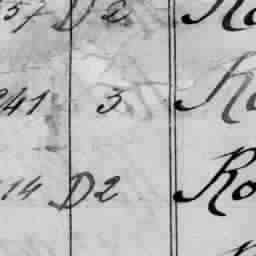 57 D 2 Ro
241 3 Ro
14 D 2 Ro